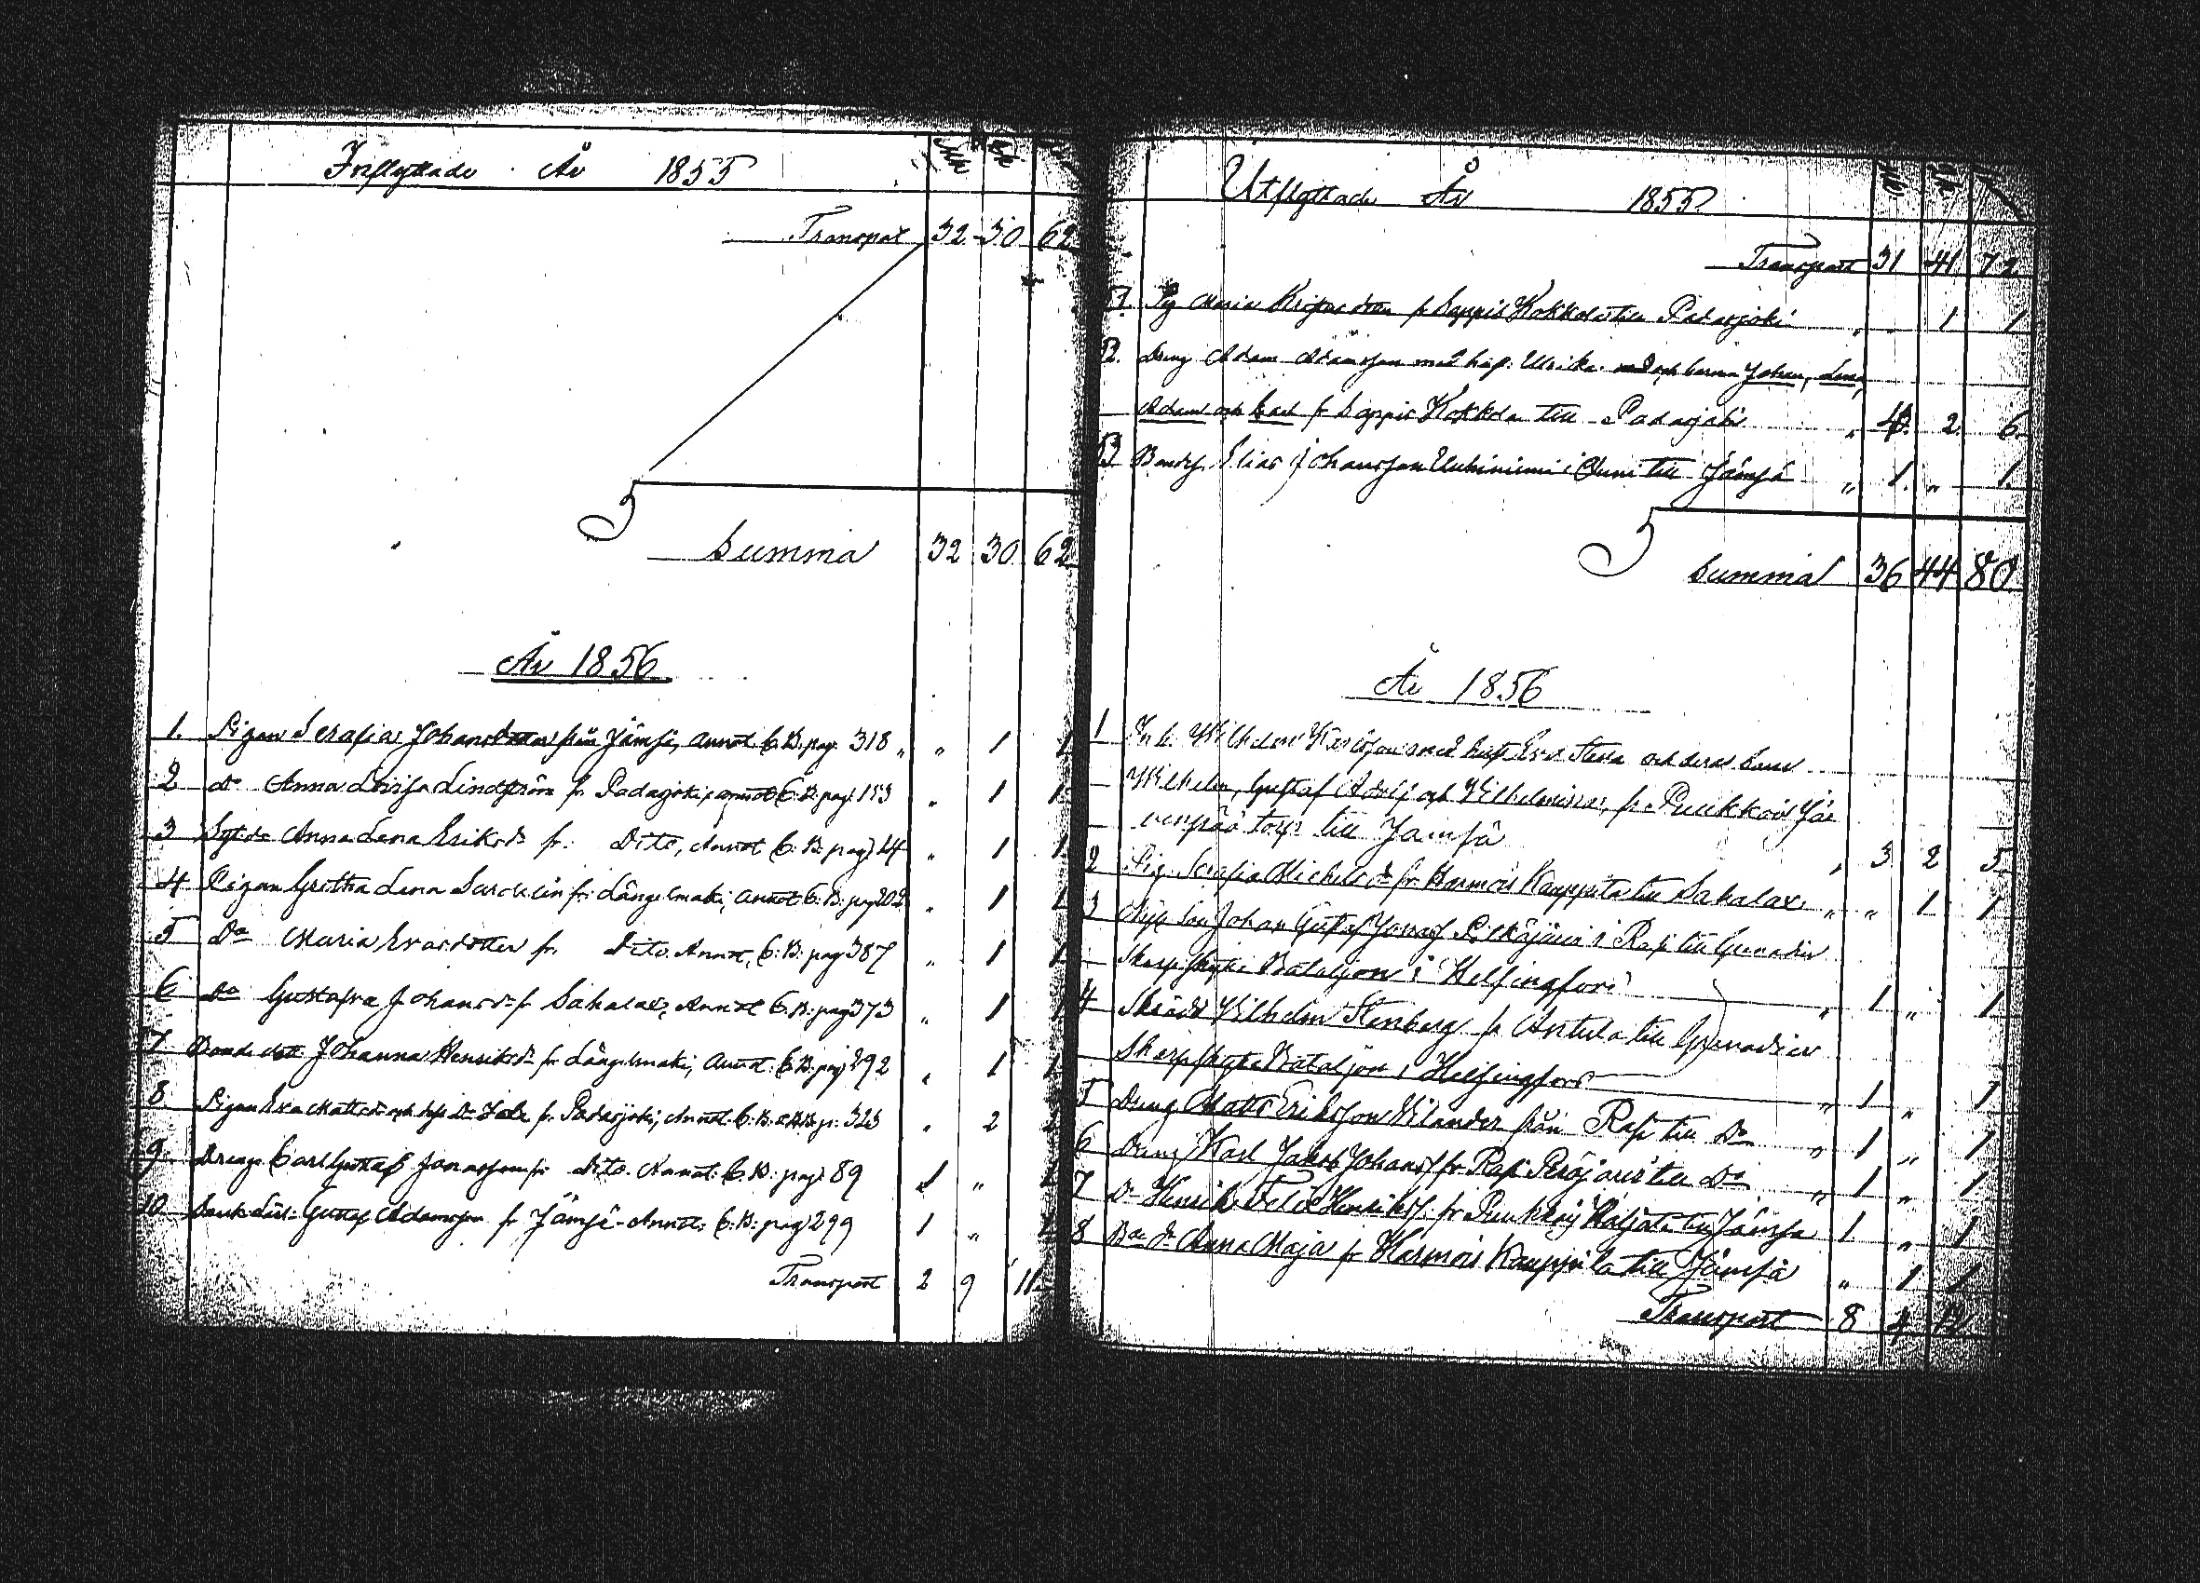 Inflyttade År 1855
Mk Qk
Transport 32 30 62
Summa 32 30 62
År 1856
1. Pigan Serafia Johansdotter från Jämsä, annot C.B. pag. 318 " " 1 1
2 Do Anna Lovisa Lindström fr. Padasjoki, annot C.B. pag. 153 " 1 1
3 Anna Lena Eriksdr fr. Dito, Annot C.B. pag. 14 " 1 1
4 Pigan Gretha Lena fr. Längelmäki, annot C.B. pag 202 " 1 1
5 Do Maria Evasdotter fr. Dito. Annot, C.B. pag 387 " 1 1
6 Do Gustafva Johansdr fr Sahalax, Annot C.B. pag 373 " 1 1
7 Bonde dott Johanna Henriksdr fr Längelmäki, Annot. C.B. pag 292 " 1 1
8. Pigan Eva Mattsdr och dess Dr fr. Padasjoki, Annot. C.B. p. 323 " 2
9. Dreng Carl Gustaf Jonasson fr Dito. Annot. C.B. pag. 89 1 " 1
10 Gustaf Adamsson fr Jämsä. Annot. C.B. pag 299 1 " 1
Transport 2 9 11
Utflyttade År 1855
Transport 31 41 72
51. Pig Maria fr Seppis Kokkola till Padasjoki " 1 1
52. Dreng Adam Adamsson med hust. Ulrika och barnen Johan, Lena,
Adam och Carl fr Seppis Kokkola till Padasjoki " 4 2 6
53 Bondes. Elias Johansson Uuhiniemi i till Jämsä " 1. " 1.
Summa 36 44 80
År 1856
1 Inh. Wilhelm med hust Eva Stina och deras barn
Wilhelm, Gustaf Adolf och Wilhelmina, fr Puukkois Jär
venpää torp till Jämsä " 3 2 5
2 Pig. Serafia Michelsdr fr Harmois Kauppila till Sahalax " " 1 1
3 Son Johan Gustaf i Rasi till Grenadier
Skarpskytte Bataljon i Helsingfors " 1 " 1
4 Wilhelm Stenberg fr Antula till Grenadier
Skarpskytte Bataljon i Helsingfors " 1 " 1
5 Dreng Matts Eriksson Wilander från Rasi till Do " 1 " 1
6 Dreng Karl Jakob Johansf fr Rasi till Do " 1 " 1
7 Dr Henrik Henriksf. fr Puukkois till Jämsä 1 " 1
8 Bd. dr Anna Maja fr Harmois Kauppila till Jämsä " 1 1
Transport 8 4 12